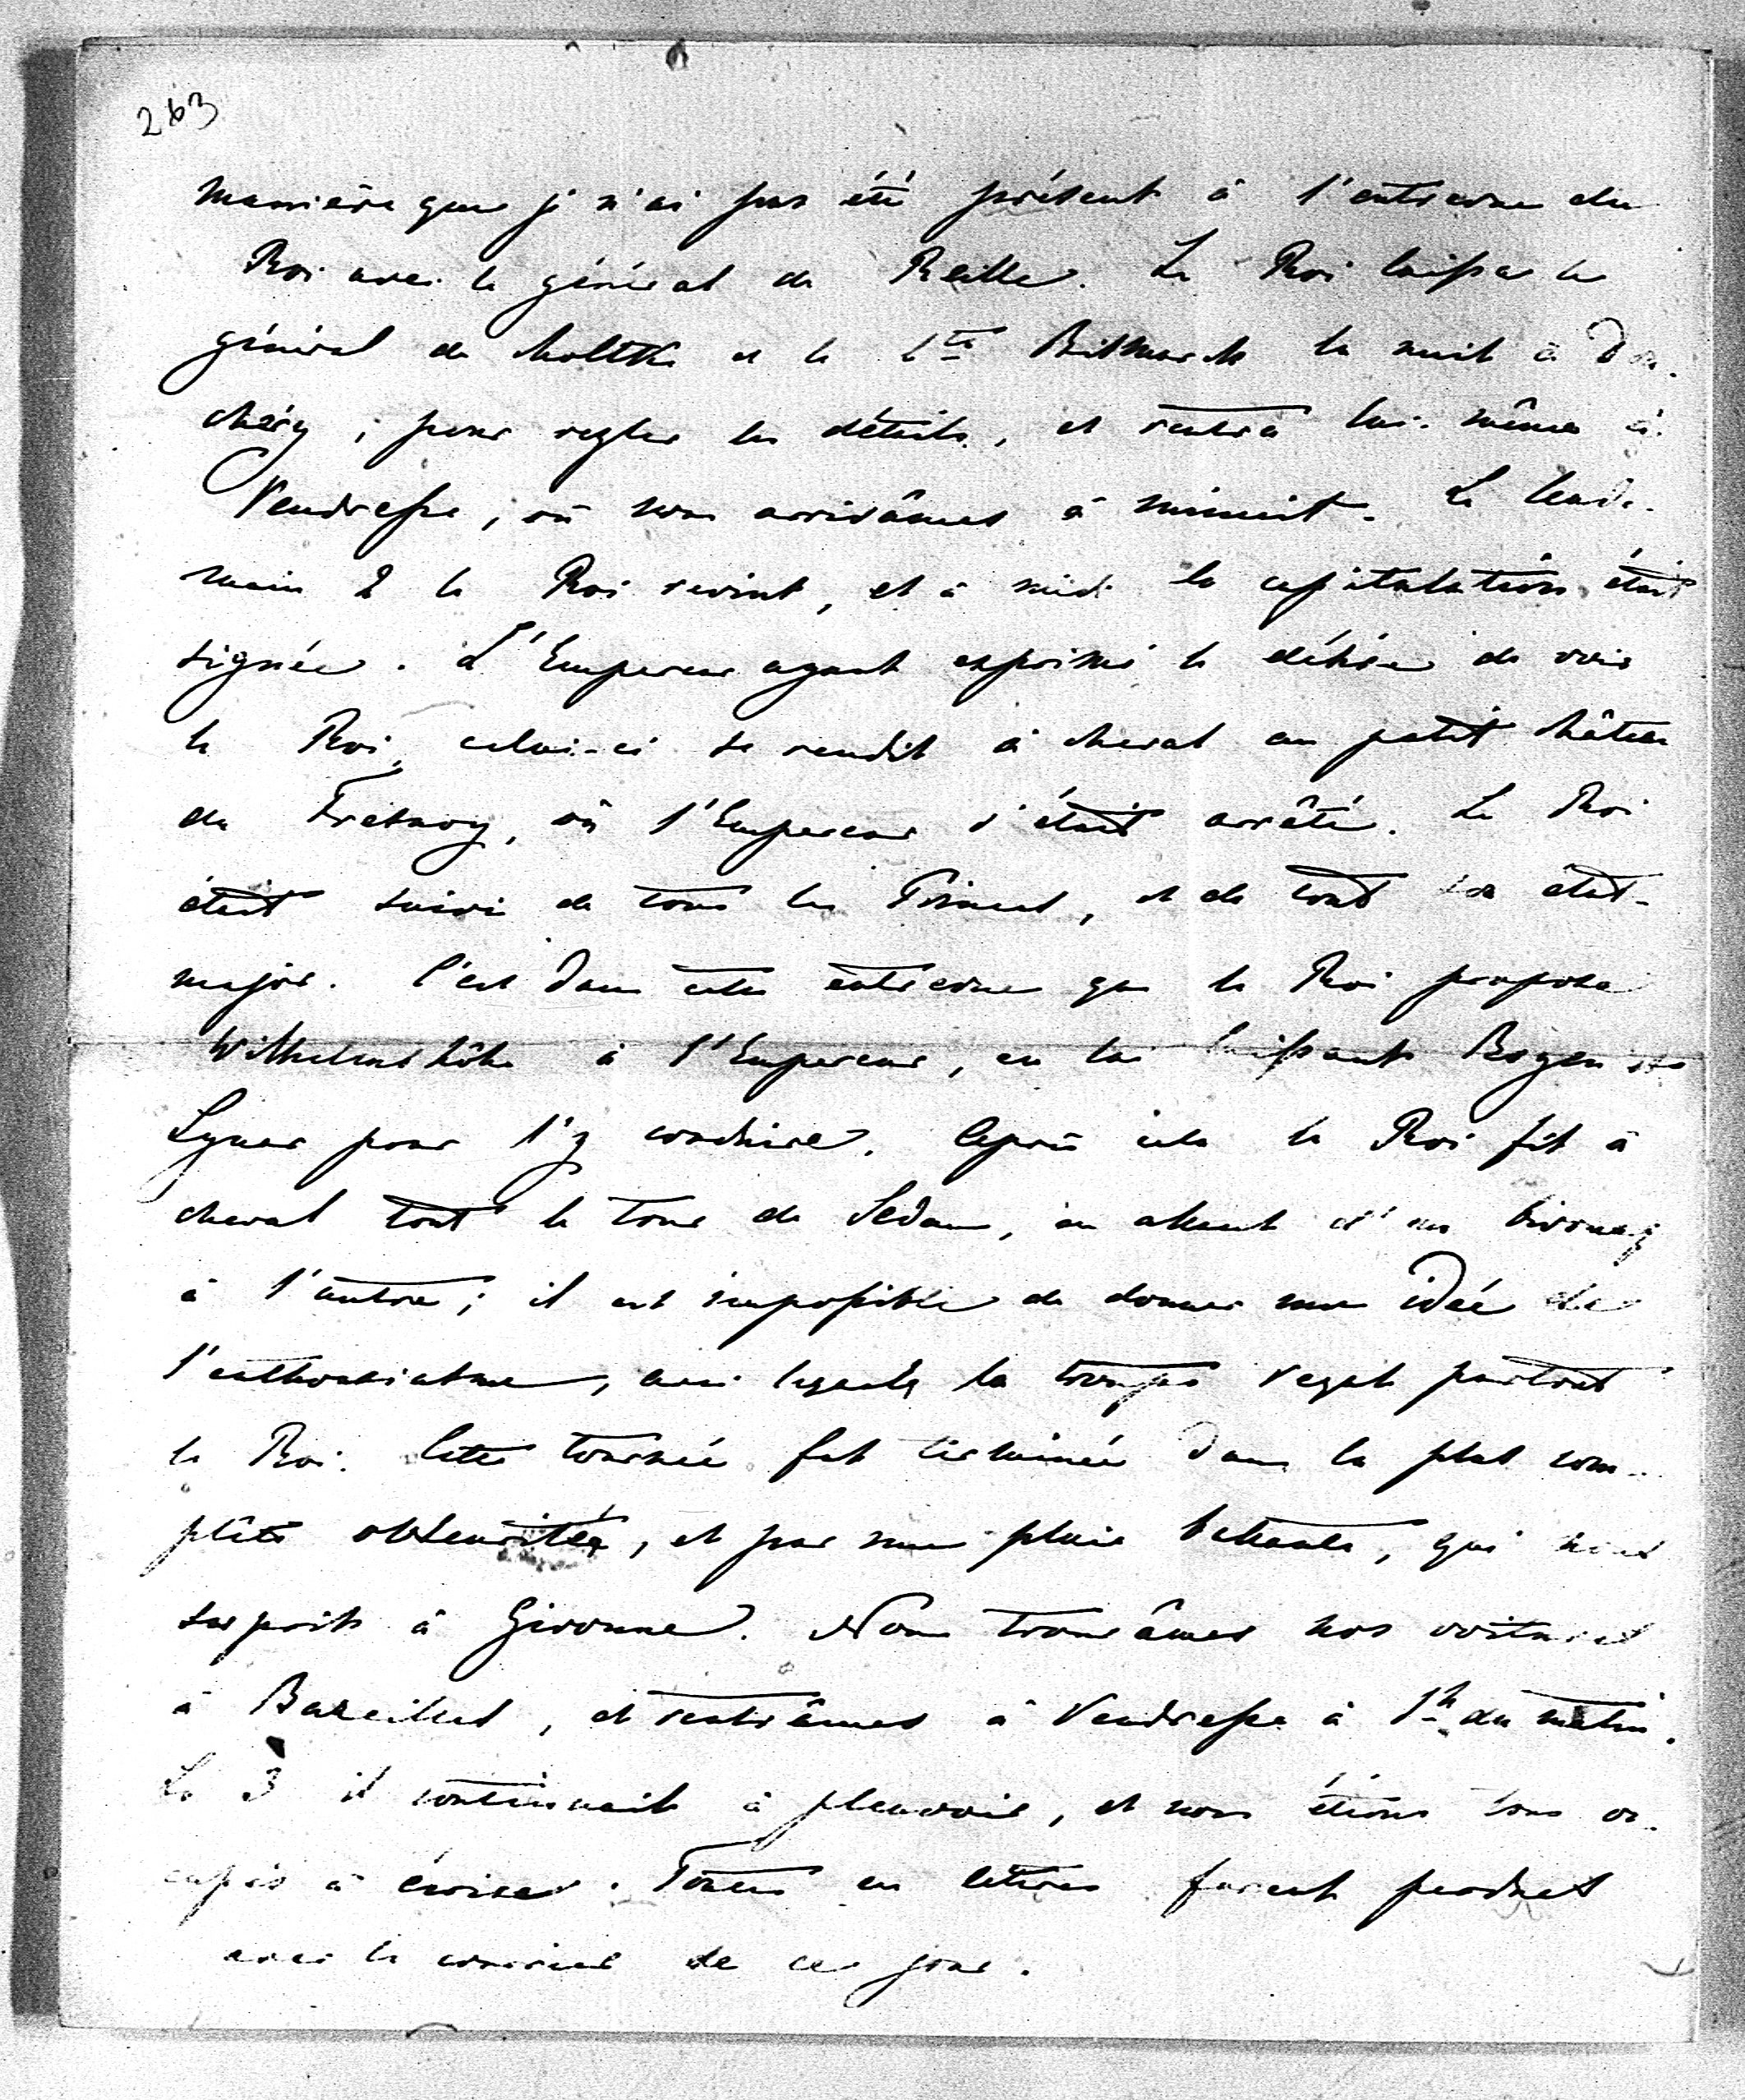 263
manière que je n'ai pas été présent à l'entrevue du
Roi avec le général de Reille. Le Roi laissa le
général de Moltke et le Cte Bismarck la nuit à Don-
chéry, pour regler les détails, et rentra lui-même à
Vendresse, où nous arrivâmes à minuit. Le lende-
main 2 le Roi revint, et à midi la capitulation était
signée. L'Empereur ayant exprimé le désire de voir
le Roi, celui-ci se rendit à cheval au petit château
de Fresnoy, où l'Empereur s'était arrêté. Le Roi
était suivi de tous les Princes, et de tout son état-
major. C'est dans cette entrevue que le Roi proposa
Wilhelmshöhe à l'Empereur, en lui laissant Boyen et
Lynar pour l'y conduire. Après cela le Roi fit à
cheval tout le tour de Sedan, en allant d'un bivouaq
à l'autre; il est impossible de donner une idée de
l'enthousiasme, avec lequel la troupe reçut partout
le Roi. Cette tournée fut terminée dans la plus com-
plète obscurité, et par une pluie battante, qui nous
surprit à Givonne. Nous trouvâmes nos voitures
à Bazeilles, et rentrâmes à Vendresse à 1h du matin.
Le 3 il continuait à pleuvoir, et nous étions tous oc-
cupés à écrire. Toutes ces lettres furent perdues
avec le courrier de ce jour.